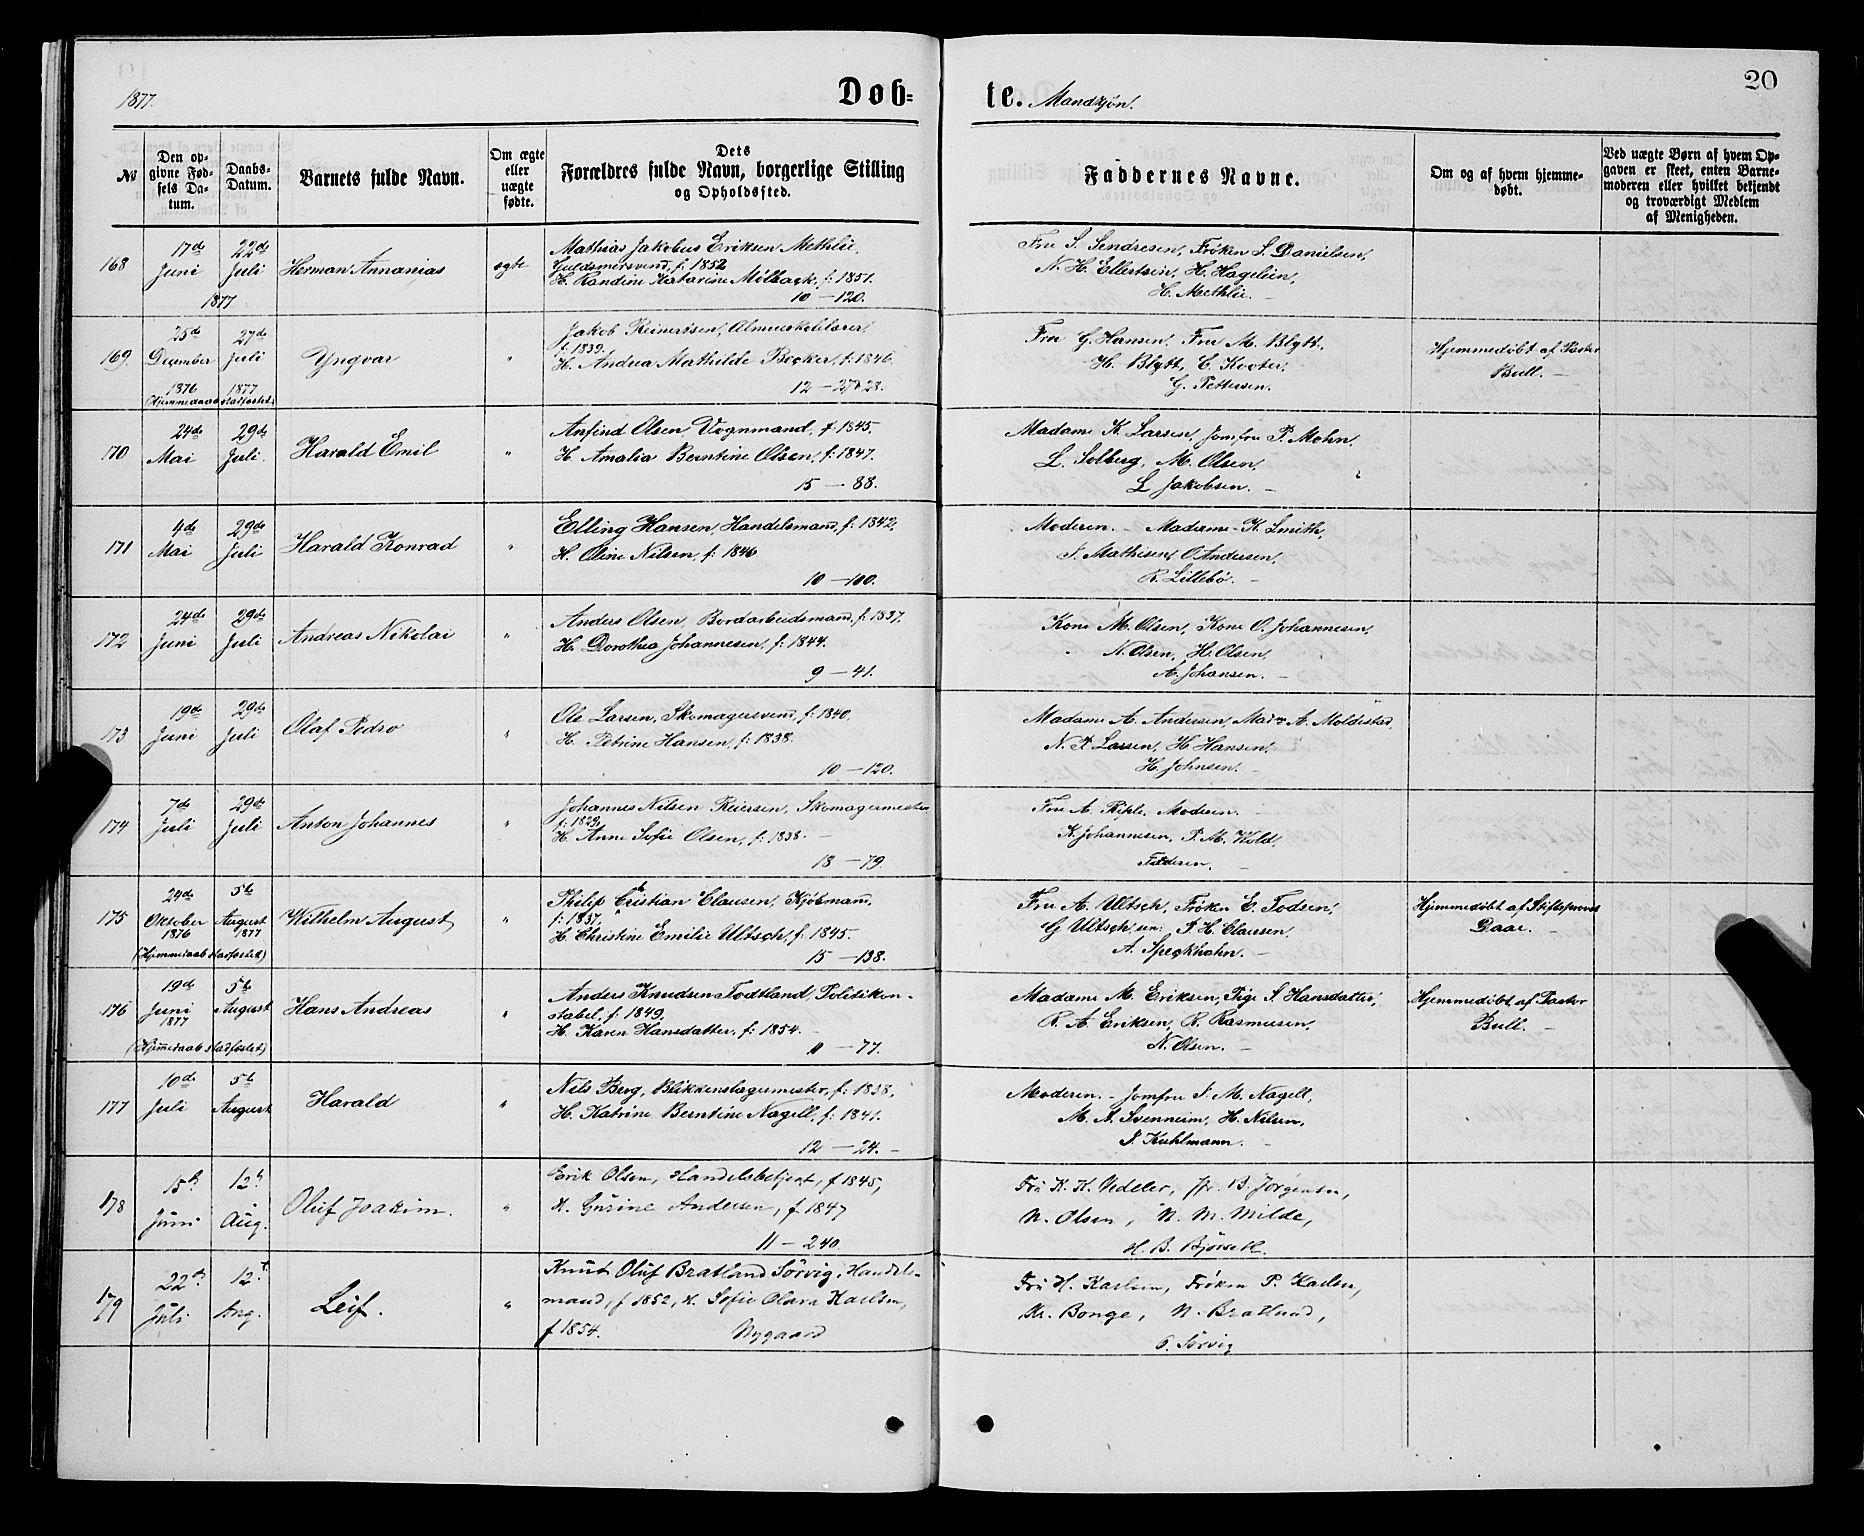 1877.
Døb=
te. Mandkjøn.
20
№
Den op-
givne Fød-
sels Da-
tum.
Daabs-
Datum.
Barnets fulde Navn.
Om ægte
eller
uægte
fødte.
Dets
Forældres fulde Navn, borgerlige Stilling
og Opholdssted.
Faddernes Navne.
Om og af hvem hjemme-
døbt.
Ved uægte Børn af hvem Op-
gaven er skeet, enten Barne-
moderen eller hvilket bekjendt
og troværdigt Medlem
af Menigheden.
168
17de
Juni
22de
Juli
1877
Herman Annanias
ægte
Mathias Jakobus Eriksen Methlie,
Guldsmersvend, f: 1852
H. Randine Katarine Milback, f: 1851.
10 — 120.
Fru S. Sendresen, Frøken S. Danielsen,
N. H. Ellertsen, H. Hagelien,
H. Methlie. —
169.
25de
December
1876
27de
Juli
1877
(Hjemmedaab stadfæstet)
Yngvar
"
Jakob Reinertsen, Almueskolelærer,
f: 1839.
H. Andrea Mathilde Becker, f: 1846.
12 — 27 & 28.
Fru G. Hansen, Fru M. Blytt.
H. Blytt, C. Kooter,
G. Pettersen.
Hjemmedøbt af Pastor
Bull. —
170
24de
Mai
29de
Juli.
Harald Emil
"
Anfind Olsen, Vognmand, f: 1845.
H. Amalia Berntine Olsen, f: 1847.
15 — 88.
Madame K. Larsen, Jomfru P. Mohn,
L. Solberg, M. Olsen,
L. Jakobsen. —
171
4de
Mai
29de
Juli
Harald Konrad
"
Elling Hansen, Handelsmand, f: 1842,
H. Oline Nilsen, f: 1846
10 — 100.
Moderen. — Madame K. Smith,
S. Mathisen, O. Andersen,
R. Lillebø. —
172
24de
Juni
29de
Juli
Andreas Nikolai
"
Anders Olsen, Bordarbeidsmand, f: 1837.
H. Dorothea Johannesen, f: 1844.
9 — 41.
Kone M. Olsen, Kone O. Johannesen,
N. Olsen, H. Olsen,
A. Johansen. —
173
19de
Juni
29de
Juli
Olaf Pedro
"
Ole Larsen, Skomagersvend, f: 1840.
H. Petrine Hansen, f: 1838.
10 — 120.
Madame A. Andersen, Mad. A. Moldestad,
N. P. Larsen, H. Hansen,
H. Johnsen. —
174
7de
Juli
29de
Juli
Anton Johannes
"
Johannes Nilsen Reiersen, Skomagermester
f: 1829,
H. Anne Sofie Olsen, f: 1838. —
18 — 79.
Fru A. Piple. Moderen. —
K. Johannesen, P. M. Kold,
Faderen. —
175
24de
Oktober
1876
5te
August
1877
(Hjemmedaab stadfæstet)
Wilhelm August
"
Philip Cristian Clausen, Kjøbmand,
f: 1837,
H. Christine Emilie Ultsch, f: 1845.
15 — 138.
Fru A. Ultsch, Frøken E. Todsen,
G. Ultsch sen: P. H. Clausen,
A. Speckhahn. —
Hjemmedøbt af Stiftsprovst
Daae. —
176
19de
Juni
1877
5te
August
(Hjemmedaab stadfæstet)
Hans Andreas
"
Anders Knudsen Todtland, Politikon-
stabel, f: 1849,
H. Karen Hansdatter, f: 1854. —
11 — 77.
Madame M. Eriksen, Pige S. Hansdatter,
R. A. Eriksen, R. Rasmusen,
N. Olsen. —
Hjemmedøbt af Pastor
Bull. —
177
10de
Juli
5te
August
Harald
"
Nils Berg, Blikkenslagermester, f: 1838,
H. Katrine Berntine Nagell, f: 1841.
12 — 24. —
Moderen. — Jomfru S. M. Nagell,
M. A. Svenneim, H. Nilsen,
J. Kuhlmann. —
178
15de
Juni
12te
Aug.
Oluf Joakim.
"
Erik Olsen, Handelsbetjent, f 1845,
H. Gurine Andersen, f 1847
11 — 240
Fru K. H. Vedeler, Jfr. B. Jørgensen,
N. Olsen, N. M. Milde,
H. B. Bjørseth.
179
22de
Juli
12te
Aug.
Leif.
"
Knut Oluf Bratland Sørvig, Handels-
mand, f 1852, H. Sofie Olara Karlsen,
f 1854. Nygaard
Fru H. Karlsen, Frøken P. Karlsen,
Kr. Bonge, N. Bratlund,
O. Sørvig